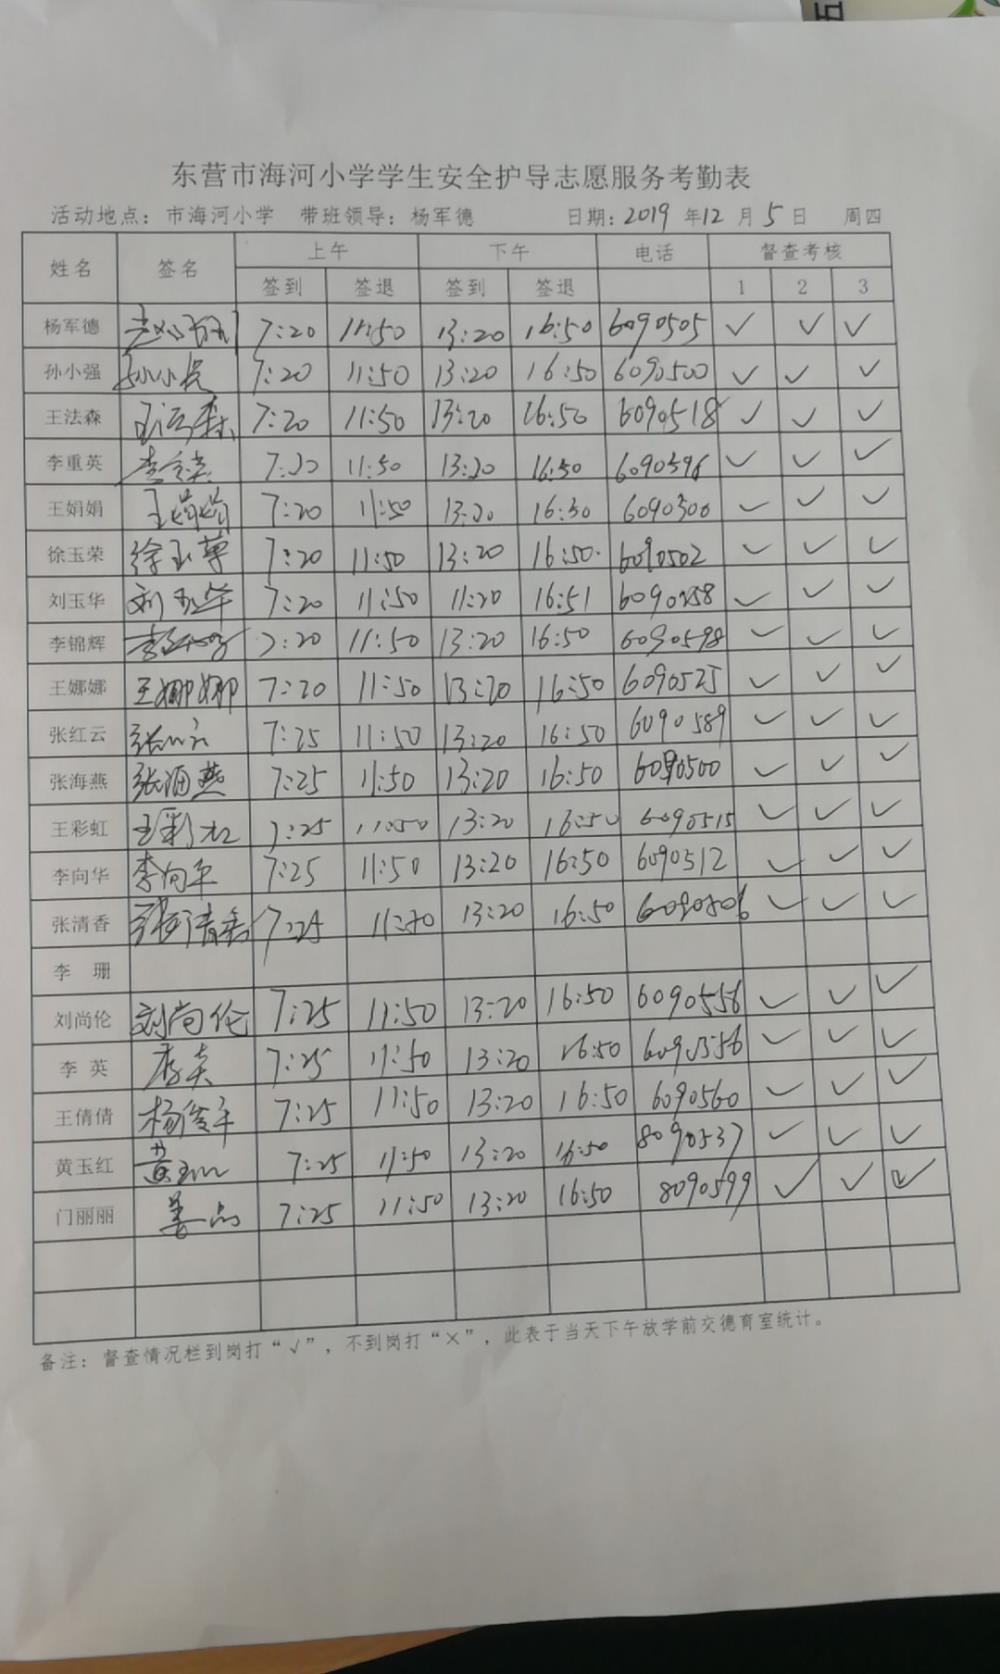 东营市海河小学学生安全护导志愿服务考勤表
活动地点：市海河小学 带班领导：杨军德 日期：2019年12月5日 周四
姓名 签名 上午 下午 电话 督查考核
签到 签退 签到 签退 1 2 3
杨军德 7:20 11:50 13:20 16:50 6090505 ✓ ✓ ✓
孙小强 孙小强 7:20 11:50 13:20 16:50 6090500 ✓ ✓ ✓
王法森 王法森 7:20 11:50 13:20 16:50 6090518 ✓ ✓ ✓
李重英 李重英 7:20 11:50 13:20 16:50 6090596 ✓ ✓ ✓
王娟娟 王娟娟 7:20 11:50 13:20 16:50 6090500 ✓ ✓ ✓
徐玉荣 徐玉荣 7:20 11:50 13:20 16:50 6090502 ✓ ✓ ✓
刘玉华 刘玉华 7:20 11:50 11:20 16:51 6090258 ✓ ✓ ✓
李锦辉 7:20 11:50 13:20 16:50 6090598 ✓ ✓ ✓
王娜娜 王娜娜 7:20 11:50 13:20 16:50 6090525 ✓ ✓ ✓
张红云 张红云 7:25 11:50 13:20 16:50 6090589 ✓ ✓ ✓
张海燕 张海燕 7:25 11:50 13:20 16:50 6090500 ✓ ✓ ✓
王彩虹 王彩虹 7:25 11:50 13:20 16:50 6090515 ✓ ✓ ✓
李向华 李向华 7:25 11:50 13:20 16:50 6090512 ✓ ✓ ✓
张清香 张清香 7:25 11:50 13:20 16:50 6090506 ✓ ✓ ✓
李 珊
刘尚伦 刘尚伦 7:25 11:50 13:20 16:50 6090556 ✓ ✓ ✓
李 英 李英 7:25 11:50 13:20 16:50 6090556 ✓ ✓ ✓
王倩倩 杨俊平 7:25 11:50 13:20 16:50 6090560 ✓ ✓ ✓
黄玉红 黄玉红 7:25 11:50 13:20 16:50 8090537 ✓ ✓ ✓
门丽丽 7:25 11:50 13:20 16:50 8090599 ✓ ✓ ✓
备注：督查情况栏到岗打“√”，不到岗打“×”，此表于当天下午放学前交德育室统计。